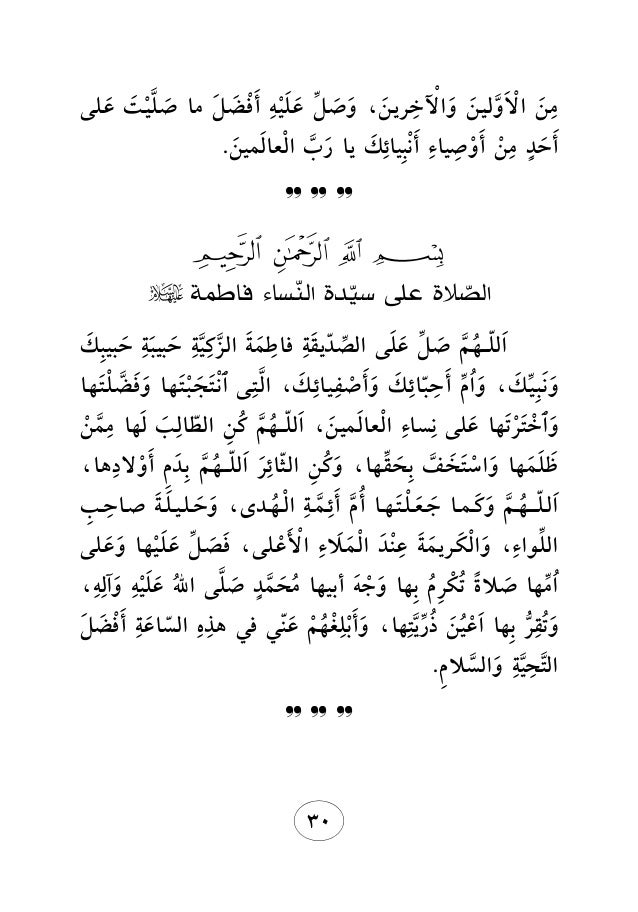 مِنَ الْاَوَّلينَ وَالْآخِرينَ، وَصَلِّ عَلَيْهِ أَفْضَلَ ما صَلَّيْتَ عَلى
أَحَدٍ مِنْ أَوْصِياءِ أَنْبِيائِكَ يا رَبَّ الْعالَمينَ.
بِسْمِ اللهِ الرَّحْمٰنِ الرَّحِيمِ
الصّلاة على سيّدة النّساء فاطمة عليها السلام
اَللّـهُمَّ صَلِّ عَلَى الصِّدّيقَةِ فاطِمَةَ الزَّكِيَّةِ حَبيبَةِ حَبيبِكَ
وَنَبِيِّكَ، وَاُمِّ أَحِبّائِكَ وَأَصْفِيائِكَ، الَّتِى ٱنْتَجَبْتَها وَفَضَّلْتَها
وَٱخْتَرْتَها عَلى نِساءِ الْعالَمينَ، اَللّـهُمَّ كُنِ الطّالِبَ لَها مِمَّنْ
ظَلَمَها وَاسْتَخَفَّ بِحَقِّها، وَكُنِ الثّائِرَ اَللّـهُمَّ بِدَمِ أَوْلادِها،
اَللّـهُمَّ وَكَما جَعَلْتَها أُمَّ أَئِمَّةِ الْهُدى، وَحَليلَةَ صاحِبِ
اللِّواءِ، وَالْكَريمَةَ عِنْدَ الْمَلَاءِ الْأَعْلى، فَصَلِّ عَلَيْها وَعَلى
اُمِّها صَلاةً تُكْرِمُ بِها وَجْهَ أبيها مُحَمَّدٍ صَلَّى اللهُ عَلَيْهِ وَآلِهِ،
وَتُقِرُّ بِها اَعْيُنَ ذُرِّيَّتِها، وَأَبْلِغْهُمْ عَنّي في هذِهِ السّاعَةِ أَفْضَلَ
التَّحِيَّةِ وَالسَّلامِ.
٣٠